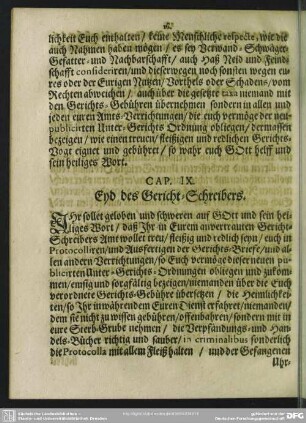 lichkeit Euch enthalten / keine Menschliche respects, wie die
auch Nahmen haben mögen / es sey Verwand- Schwäger-
Gefatter- und Nachbarschafft / auch Haß Neid und Feind-
schafft consideriren / und dieserwegen noch sonsten wegen eu-
res oder der Eurigen Nutzen / Vortheils oder Schadens / vom
Rechten abweichen / auch über die gesetzte taxa niemand mit
den Gerichts-Gebühren übernehmen sondern in allen und
jeden euren Amts-Verrichtungen / die euch vermöge der neu-
publicirten Unter-Gerichts Ordnung obliegen / dermassen
bezeigen / wie einem treuen / fleißigen und redlichen Gerichts-
Vogt eignet und gebühret / so wahr euch GOtt helff und
sein heiliges Wort.
CAP. IX.
Eyd des Gericht-Schreibers.
IHr sollet geloben und schweren auf GOtt und sein hei-
liges Wort / daß Ihr in Eurem anvertrauten Gericht-
Schreibers Amt wollet treu / fleißig und redlich seyn / euch in
Protocolliren / und Ausfertigen der Gerichts-Brieffe / und al-
len andern Verrichtungen / so Euch vermöge dieser neuen pu-
blicirten Unter-Gerichts-Ordnungen obliegen und zukom-
men / emsig und sorgfältig bezeigen / niemanden über die Euch
verordnete Gerichts-Gebühr übersetzen / die Heimlichkei-
ten / so Ihr inwährendem Euren Dienst erfahret / niemanden /
dem sie nicht zu wissen gebühren / offenbahren / sondern mit in
eure Sterb-Grube nehmen / die Verpfändungs- und Han-
dels-Bücher richtig und sauber / in criminalibus sonderlich
die Protocolla mit allem Fleiß halten / und der Gefangenen
Uhr-